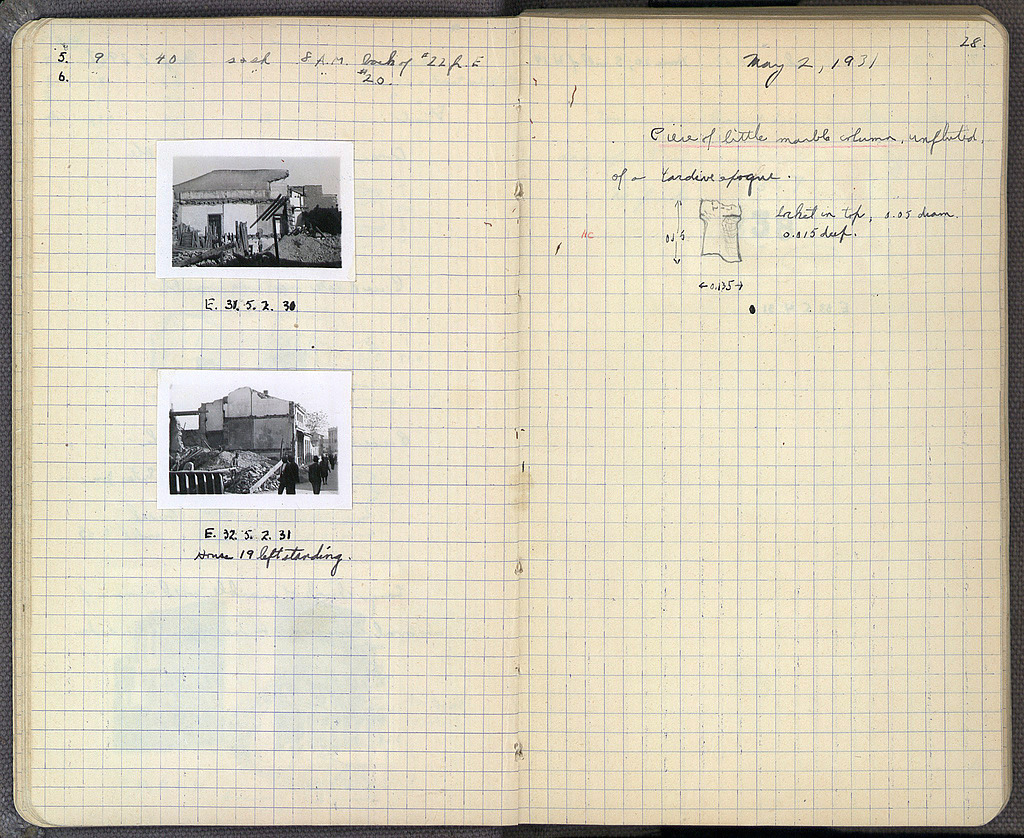 5. 9 40 sash 8 P.M. back of #22 p. E
6. " " " " #20.
E. 31. 5. 2. 31
E. 32. 5. 2. 31
House 19 left standing.
28.
May 2, 1931
Piece of little marble column, unfluted,
of a tardive epoque.
Socket in top, 0.05 diam.
0.015 deep.
HC
0.135